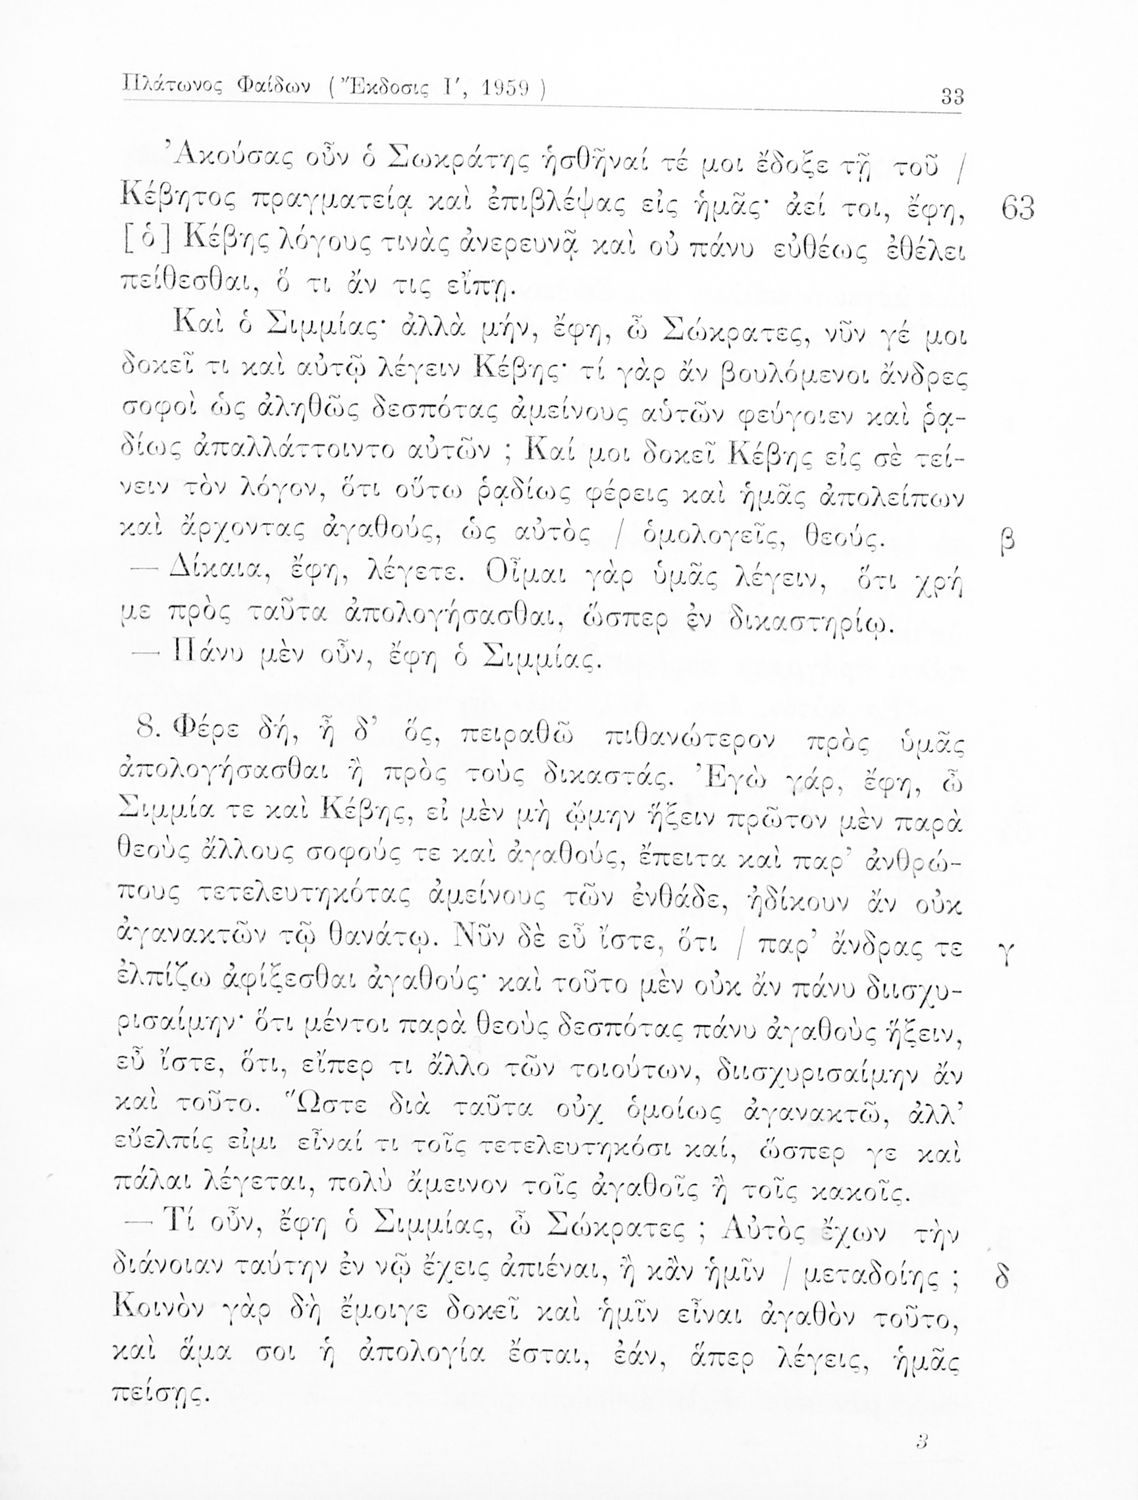 Πλάτωνος Φαίδων ( Ἔκδοσις Ι΄, 1959 )
33
Ἀκούσας οὖν ὁ Σωκράτης ἡσθῆναί τέ μοι ἔδοξε τῇ τοῦ /
Κέβητος πραγματείᾳ καὶ ἐπιβλέψας εἰς ἡμᾶς· ἀεί τοι, ἔφη, 63
[ὁ] Κέβης λόγους τινὰς ἀνερευνᾷ καὶ οὐ πάνυ εὐθέως ἐθέλει
πείθεσθαι, ὅ τι ἄν τις εἴπῃ.
Καὶ ὁ Σιμμίας· ἀλλὰ μήν, ἔφη, ὦ Σώκρατες, νῦν γέ μοι
δοκεῖ τι καὶ αὐτῷ λέγειν Κέβης· τί γὰρ ἄν βουλόμενοι ἄνδρες
σοφοὶ ὡς ἀληθῶς δεσπότας ἀμείνους αὑτῶν φεύγοιεν καὶ ῥᾳ-
δίως ἀπαλλάττοιντο αὐτῶν ; Καί μοι δοκεῖ Κέβης εἰς σὲ τεί-
νειν τὸν λόγον, ὅτι οὕτω ῥᾳδίως φέρεις καὶ ἡμᾶς ἀπολείπων
καὶ ἄρχοντας ἀγαθούς, ὡς αὐτὸς / ὁμολογεῖς, θεούς. β
— Δίκαια, ἔφη, λέγετε. Οἶμαι γὰρ ὑμᾶς λέγειν, ὅτι χρή
με πρὸς ταῦτα ἀπολογήσασθαι, ὥσπερ ἐν δικαστηρίῳ.
— Πάνυ μὲν οὖν, ἔφη ὁ Σιμμίας.
8. Φέρε δή, ἦ δ’ ὅς, πειραθῶ πιθανώτερον πρὸς ὑμᾶς
ἀπολογήσασθαι ἢ πρὸς τοὺς δικαστάς. Ἐγὼ γάρ, ἔφη, ὦ
Σιμμία τε καὶ Κέβης, εἰ μὲν μὴ ᾤμην ἥξειν πρῶτον μὲν παρὰ
θεοὺς ἄλλους σοφούς τε καὶ ἀγαθούς, ἔπειτα καὶ παρ’ ἀνθρώ-
πους τετελευτηκότας ἀμείνους τῶν ἐνθάδε, ἠδίκουν ἄν οὐκ
ἀγανακτῶν τῷ θανάτῳ. Νῦν δὲ εὖ ἴστε, ὅτι / παρ’ ἄνδρας τε γ
ἐλπίζω ἀφίξεσθαι ἀγαθούς· καὶ τοῦτο μὲν οὐκ ἄν πάνυ διισχυ-
ρισαίμην· ὅτι μέντοι παρὰ θεοὺς δεσπότας πάνυ ἀγαθοὺς ἥξειν,
εὖ ἴστε, ὅτι, εἴπερ τι ἄλλο τῶν τοιούτων, διισχυρισαίμην ἄν
καὶ τοῦτο. Ὥστε διὰ ταῦτα οὐχ ὁμοίως ἀγανακτῶ, ἀλλ’
εὔελπίς εἰμι εἶναί τι τοῖς τετελευτηκόσι καί, ὥσπερ γε καὶ
πάλαι λέγεται, πολὺ ἄμεινον τοῖς ἀγαθοῖς ἢ τοῖς κακοῖς.
— Τί οὖν, ἔφη ὁ Σιμμίας, ὦ Σώκρατες ; Αὐτὸς ἔχων τὴν
διάνοιαν ταύτην ἐν νῷ ἔχεις ἀπιέναι, ἢ κἂν ἡμῖν / μεταδοίης ; δ
Κοινὸν γὰρ δὴ ἔμοιγε δοκεῖ καὶ ἡμῖν εἶναι ἀγαθὸν τοῦτο,
καὶ ἅμα σοι ἡ ἀπολογία ἔσται, ἐάν, ἅπερ λέγεις, ἡμᾶς
πείσῃς.
3